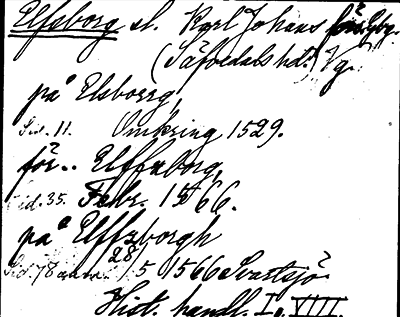 Elfsborg sl. Karl Johans förs:g.
(Säfvedals hd.) Vg.
på Elsborrg,
Sid. 11. Omkring 1529.
för.. Elffzborg,
Sid. 35. Febr. 1566.
på Elffzborgh
Sid. 78 28/5 1566 Svartsjö
Hist. handl. I o. VIII.